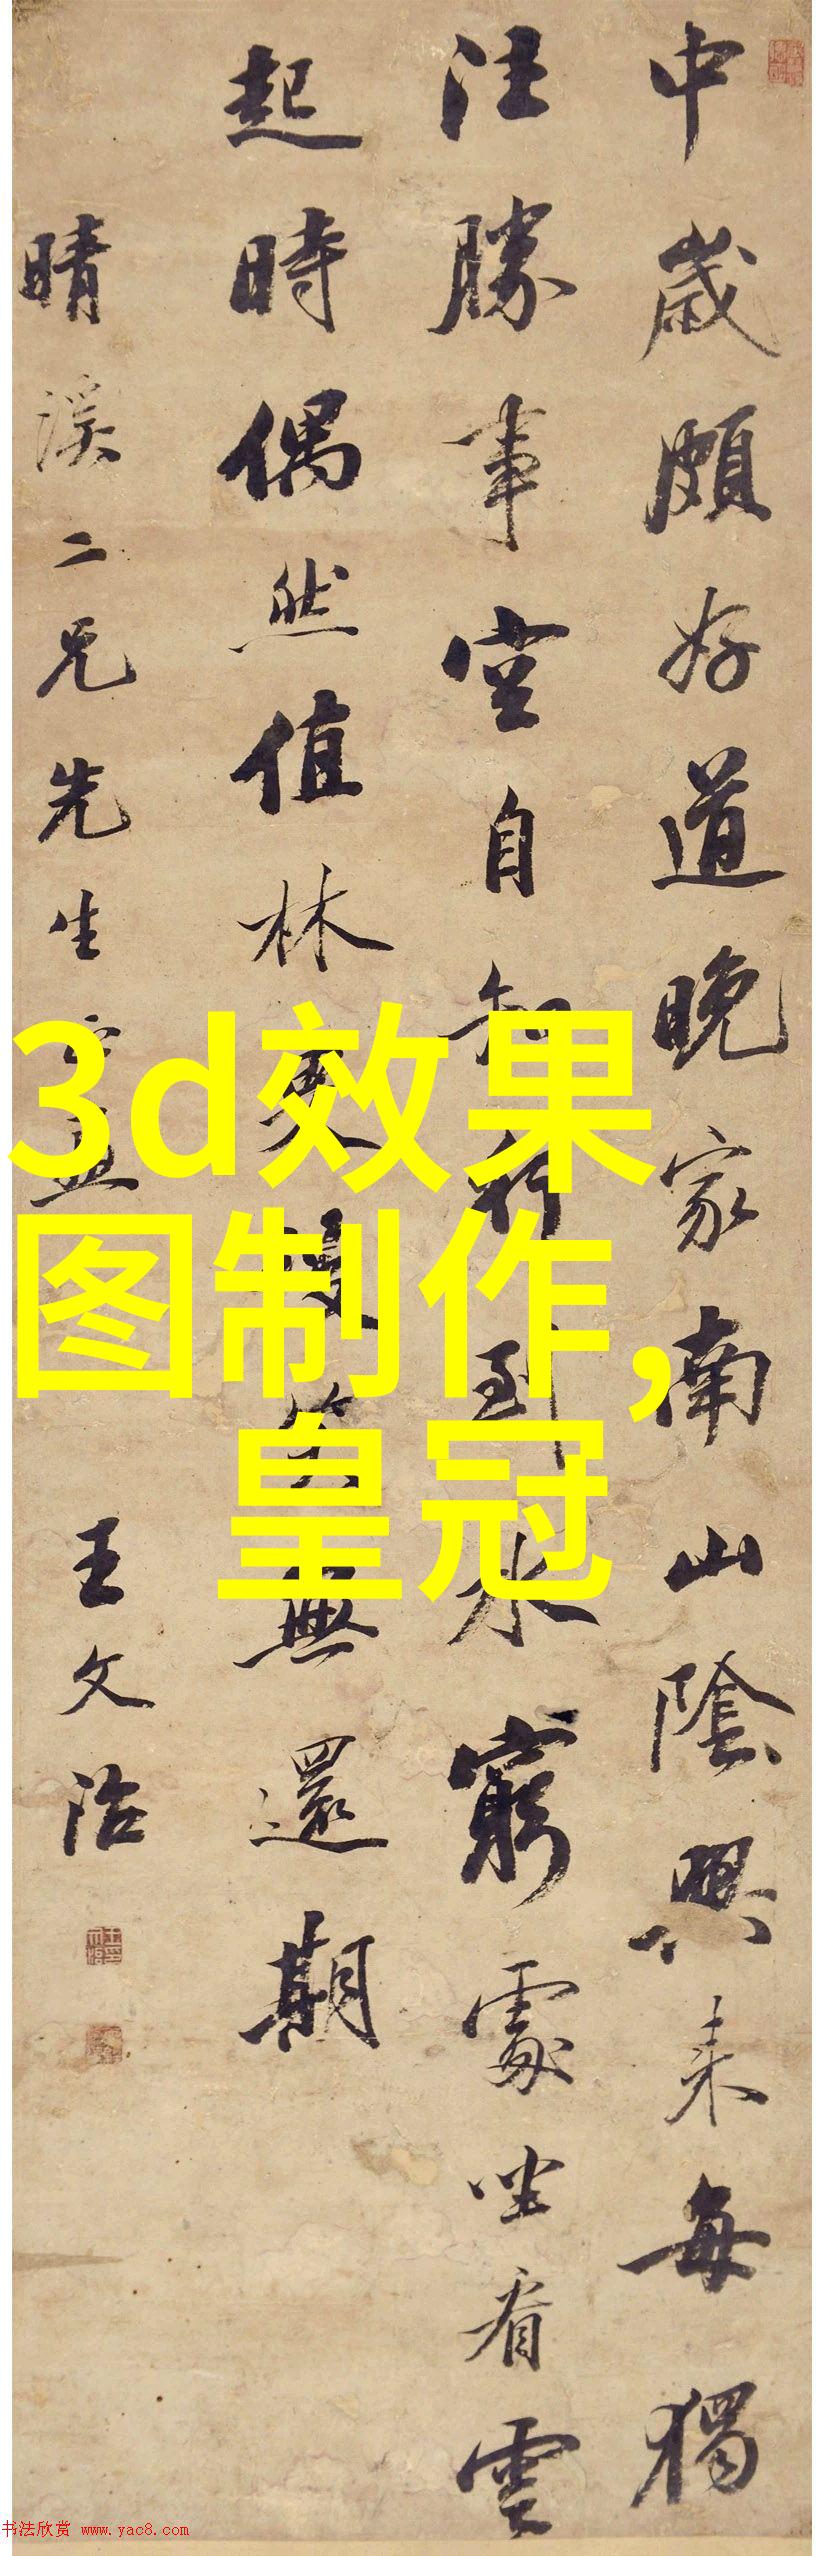 中歲頗好道晚家南山陰興來每獨
往勝事空自知行到水窮處坐看雲
起時偶然值林叟笑無還期
晴溪二兄先生
王文治
3d效果
图制作,
皇冠
书法欣赏 www.yac8.com